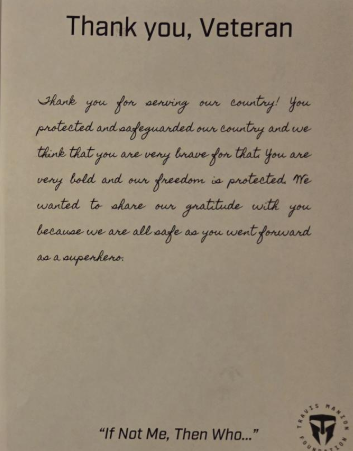 Thank you, Veteran
Thank you for serving our country! You
protected and safeguarded our country and we
think that you are very brave for that. You are
very bold and our freedom is protected. We
wanted to share our gratitude with you
because we are all safe as you went forward
as a superhero.
"If Not Me, Then Who..."
TRAVIS MANION
FOUNDATION